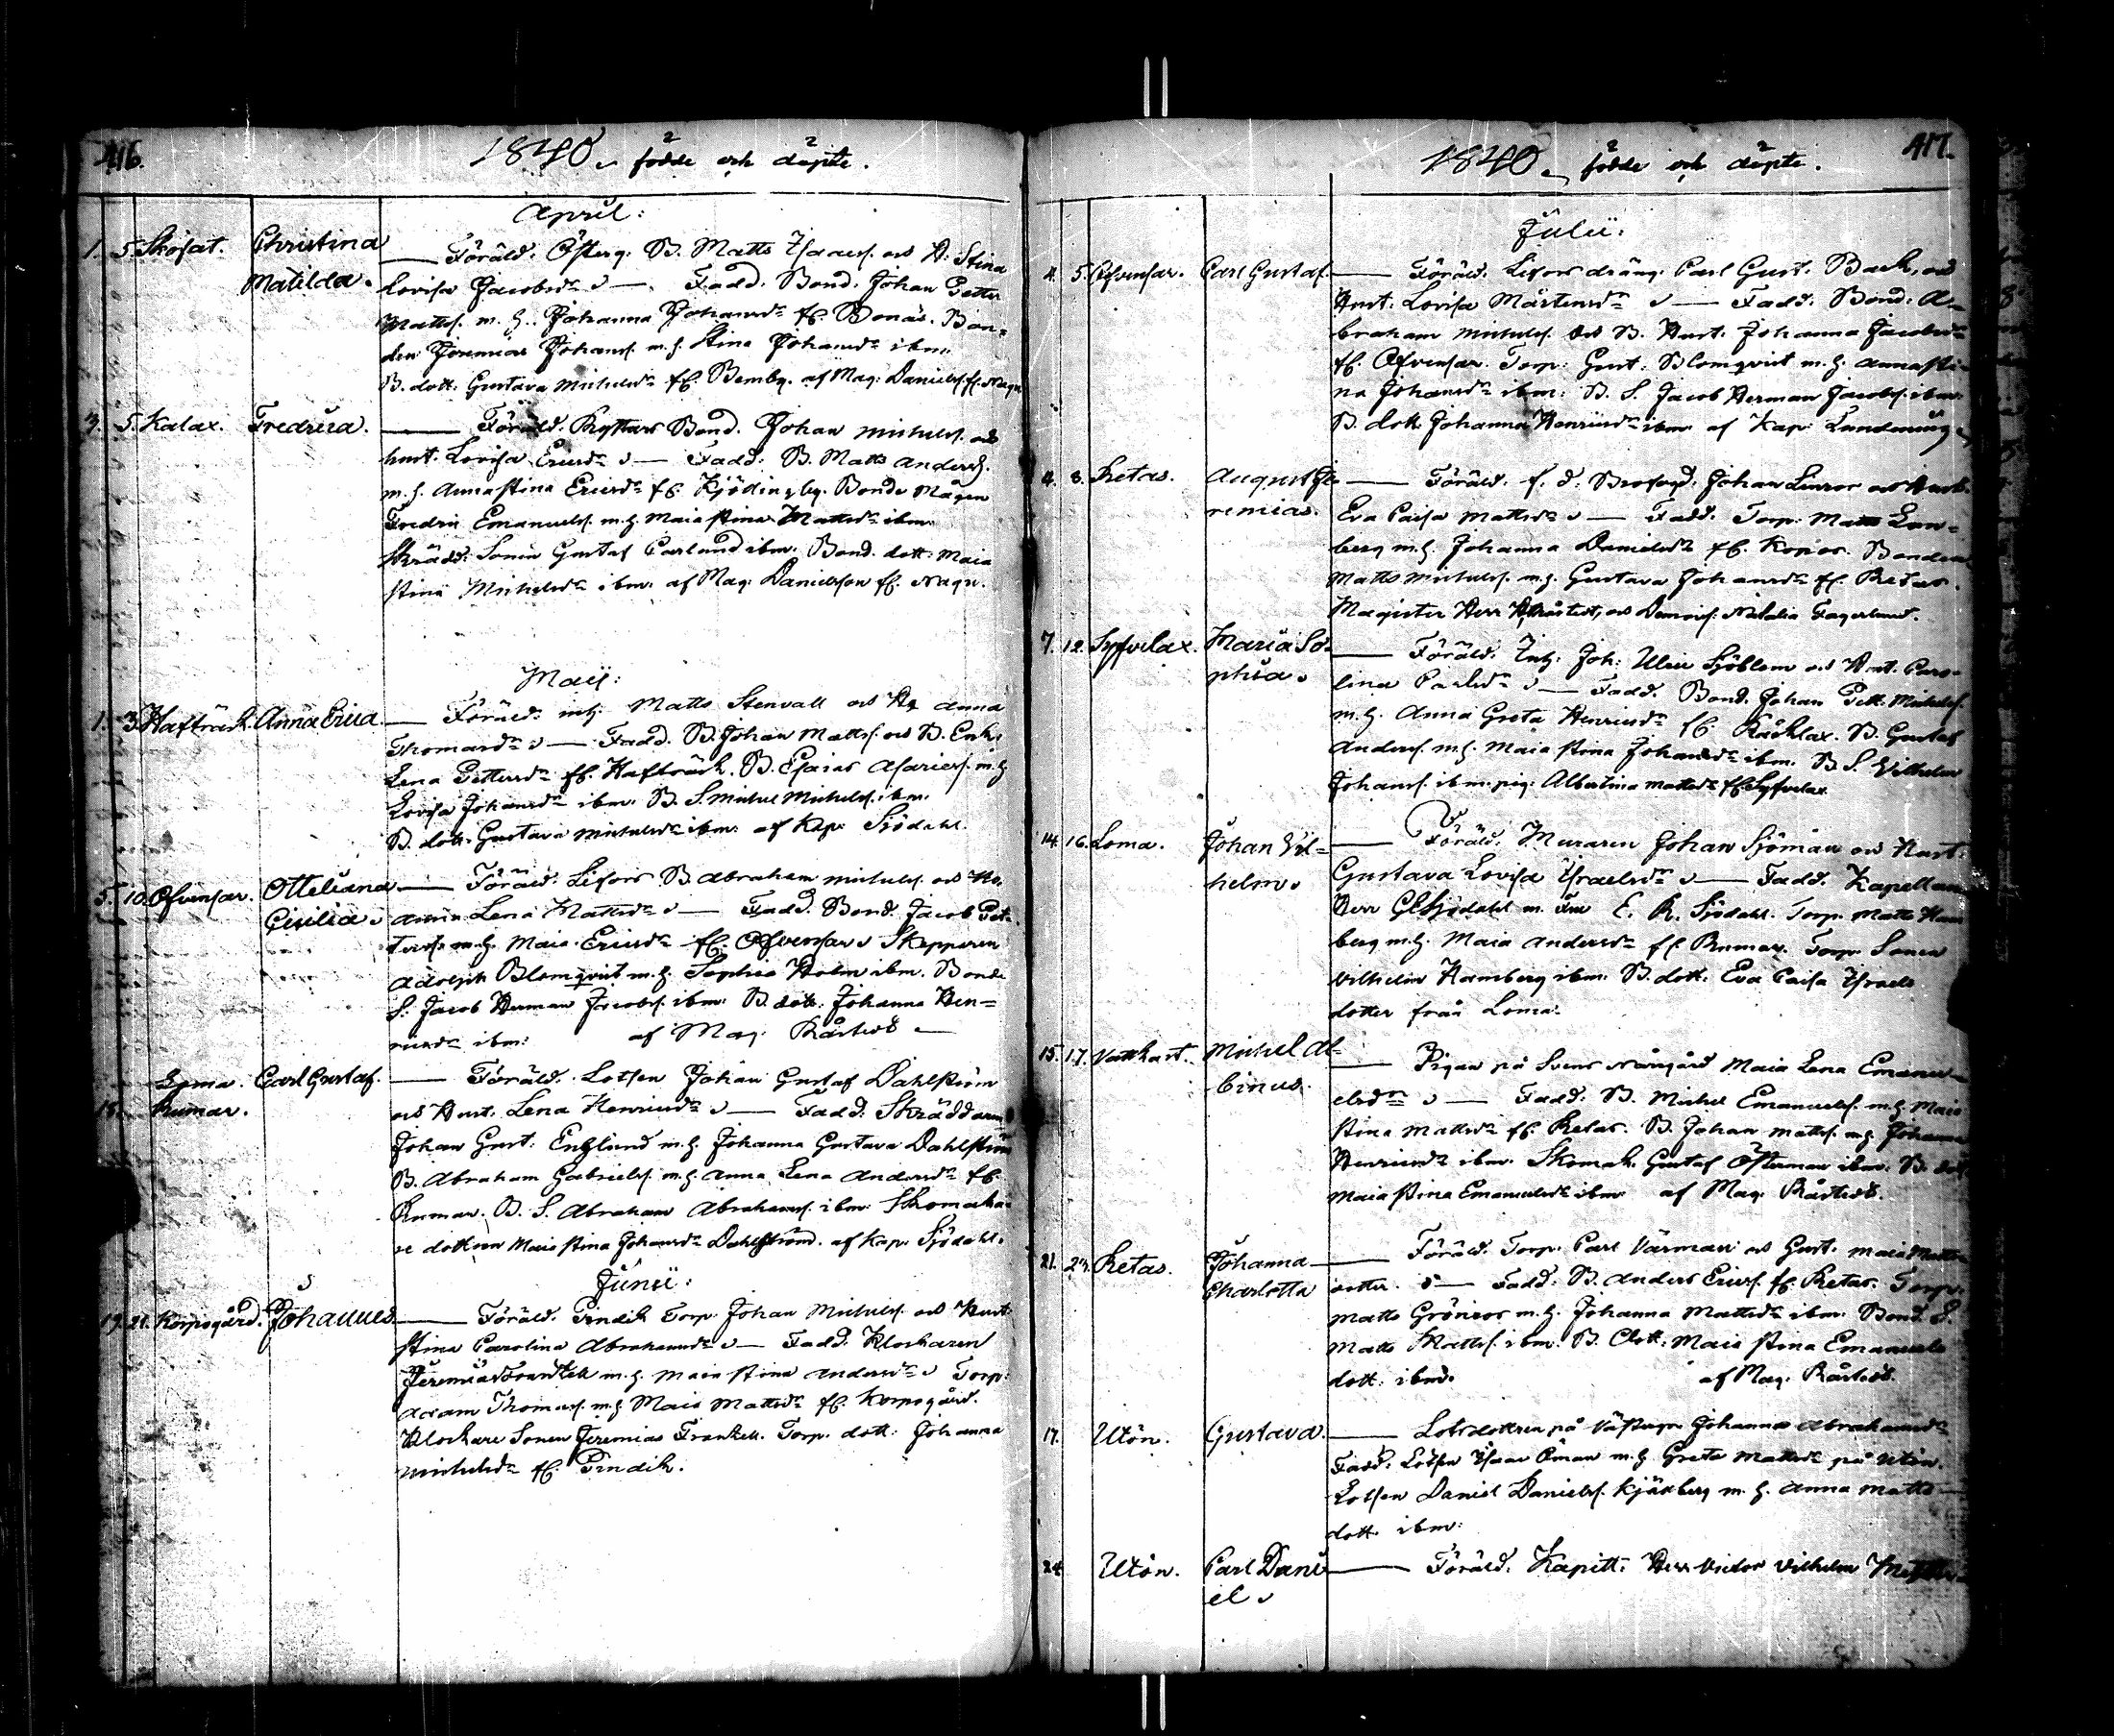 416.
1840. födde och döpte.
April:
1. 5. Christina
Matilda. — Föräld. Österg. B. Matts och H. Stina
Lovisa Jacobsdr — Fadd. Bond. Johan Petter
Mattss. m. h. Johanna Johansdr fr. Bonäs. Bon-
den Jeremias Johanss. m. h. Stina Johansdr ibm.
B. dott. Gustava Michelsdr fr. Bemby. af Mag. Danielss. fr. Nagu
3. 5. Kalax. Fredrica. — Föräld. Bond. Johan Michelss. och
hust. Lovisa Ericsdr — Fadd. B. Matts Anderss.
m. h. Anna Stina Ericsdr fr. Bonde Mågen
Fredric Emanuelss. m. h. Maia Stina Mattsdr ibm.
Skrädd. Sonen Gustaf ibm. Bond. dott. Maia
Stina Michelsdr ibm. af Mag. Danielsson fr. Nagu.
Maij:
1. 3. Hafträsk. Anna Erica. — Föräld. inh. Matts Stenvall och H. Anna
Thomasdr — Fadd. B. Johan Mattss. och B. Enk.
Lena Pettersdr fr. Hafträsk. B. Esaias Asariess. m. h.
Lovisa Johansdr ibm. B. S. Michel Michelss. ibm.
B. dott. Gustava Michelsdr ibm. af Kap. Sjödahl.
5. 10. Ofvensar. Otteliana
Cicilia — Föräld. Lifors B. Abraham Michelss. och H.
Anna Lena Mattsdr — Fadd. Bond. Jacob Pet-
terss. m. h. Maia Ericsdr fr. Ofvensar. Skepparen
Adolph Blomqvist m. h. Sophia Holm ibm. Bond.
S. Jacob Herman Jacobss. ibm. B. dott. Johanna Hen-
ricsdr ibm. af Mag. Råstedt
Loma. Carl Gustaf. — Föräld. Lotsen Johan Gustaf Dahlström
Rumar. och Hust. Lena Henricsdr — Fadd. Skräddaren
Johan Gust. Englund m. h. Johanna Gustava Dahlström
B. Abraham Gabrielss. m. h. Anna Lena Andersdr fr.
Rumar. B. S. Abraham Abrahamss. ibm. Skomaka-
re dottren Maia Stina Johansdr Dahlström. af Kap. Sjödahl.
Junii:
19. 21. Korpogård. Johannes — Föräld. Torp. Johan Michelss. och Hust.
Stina Carolina Abrahamsdr — Fadd. Klockaren
Jeremias Franzell m. h. Maia Stina Andersdr Torp.
Adam Thomass. m. h. Maia Mattsdr fr. Korpogård.
Klockare Sonen Jeremias Torp. dott. Johanna
Michelsdr fr.
417.
1840. födde och döpte.
Julii:
4. 5. Ofvensar. Carl Gustaf. — Föräld. Lifors dräng. Carl Gust. Back, och
Hust. Lovisa Mårtensdr — Fadd. Bond. A-
braham Michelss. och B. Hust. Johanna Jacobsdr
fr. Ofvensar. Torp. Gust. Blomqvist m. h. Anna Sti-
na Johansdr ibm. B. S. Jacob Herman Jacobss. ibm.
B. dott. Johanna Henricsdr ibm. af Kap.
4. 8. Retas. August Je-
remias. — Föräld. f. d. Johan och Hust.
Eva Caisa Mattsdr — Fadd. Torp. Matts
berg m. h. Johanna Danielsdr fr. Bonden
Matts Michelss. m. h. Gustava Johansdr fr. Retas.
Magister Herr Råstedt, och Natalia Fagerlund.
7. 12. Syfvelax. Maria So-
phia. — Föräld. Inh. Joh. Ulric Sjöblom och Hust. Caro-
lina Carlsdr — Fadd. Bond. Johan Pett. Michelss.
m. h. Anna Greta Henricsdr fr. B. Gustaf
Anderss. m. h. Maia Stina Johansdr ibm. B. S. Vilhelm
Johanss. ibm. pig. Albertina Mattsdr fr. Syfvelax.
14. 16. Loma. Johan Vil-
helm. — Föräld. Muraren Johan Sjöman och Hust.
Gustava Lovisa Israelsdr — Fadd. Kapellan
Herr Sjödahl m. Fru E. R. Sjödahl. Torp. Matts Ham-
berg m. h. Maia Andersdr fr. Rumar. Torp. Sonen
Vilhelm Hamberg ibm. B. dott. Eva Caisa Israels
dotter från Loma.
15. 17. Michel Al-
binus. — Pigan på Svens Maia Lena Emanu-
elsdr — Fadd. B. Michel Emanuelss. m. h. Maia
Stina Mattsdr fr. Retas. B. Johan Mattss. m. h. Johanna
Henricsdr ibm. Skomak. Gustaf Österman ibm. B. dott.
Maia Stina Emanuelsdr ibm. af Mag. Råstedt.
21. Retas. Johanna
Charlotta — Föräld. Torp. Carl Värman och Hust. Maia Matts
dotter. — Fadd. B. Anders Ericss. fr. Retas. Torp.
Matts Grönroos m. h. Johanna Mattsdr ibm. Bond. S.
Matts Mattss. ibm. B. dott. Maia Stina Emanuels
dott. ibm. af Mag. Råstedt.
17. Utön. Gustava. — Lotsdottren på Johanna Abrahamsdr
Fadd. Lotsen Isaac Öman m. h. Greta Mattsdr på Utön.
Lotsen Daniel Danielss. m. h. Anna Matts-
dott. ibm.
24 Utön. Carl Dani-
el — Föräld. Herr Victor Vilhelm